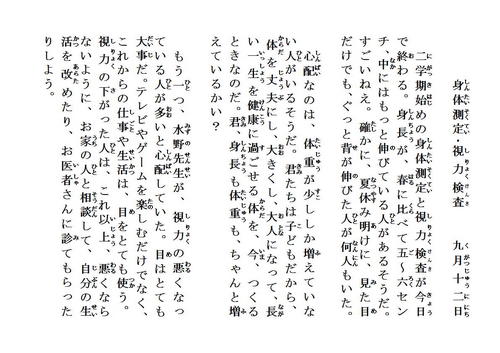 身体測定・視力検査　九月十二日
　二学期始めの身体測定と視力検査が今日
で終わる。身長が、春に比べて五～六セン
チ、中にはもっと伸びている人があるそうだ。
すごいねえ。確かに、夏休み明けに、見た目
だけでも、ぐっと背が伸びた人が何人もいた。
　心配なのは、体重が少ししか増えていな
い人がいるそうだ。君たちは子どもだから、
体を丈夫にし、大きくし、大人になって、長
い一生を健康に過ごせる体を、今、つくる
ときなのだ。君、身長も体重も、ちゃんと増
えているかい？
　もう一つ、水野先生が、視力の悪くなっ
ている人が多いと心配していた。目はとても
大事だ。テレビやゲームを楽しむだけでなく、
これからの仕事や生活は、目をとても使う。
視力の下がった人は、これ以上、悪くなら
ないように、お家の人と相談して、自分の生
活を改めたり、お医者さんに診てもらった
りしよう。